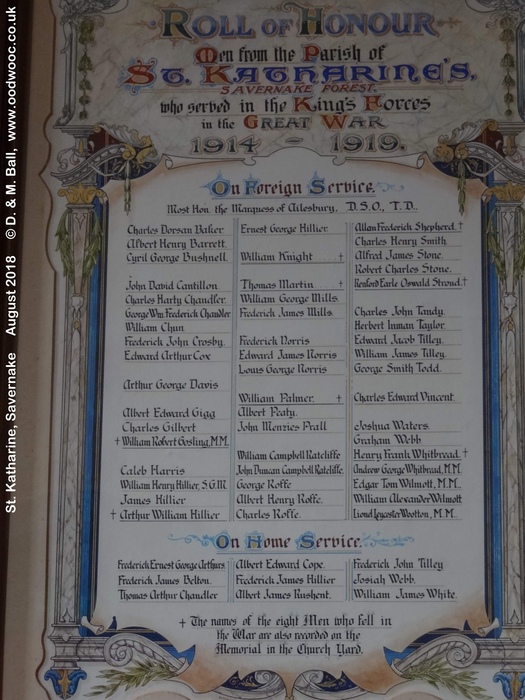 ROLL OF HONOUR
Men from the Parish of
ST. KATHARINE'S,
SAVERNAKE FOREST,
who served in the King's Forces
in the GREAT WAR
1914 - 1919.
On Foreign Service.
Most Hon. the Marquess of Ailesbury, D.S.O., T.D.
Charles Dorsan Baker
Albert Henry Barrett
Cyril George Bushnell
John David Cantillon
Charles Harty Chandler
George Wm Frederick Chandler
William Chun
Frederick John Crosby
Edward Arthur Cox
Arthur George Davis
Albert Edward Gigg
Charles Gilbert
† William Robert Gosling, M.M.
Caleb Harris
William Henry Hillier, S.G.M.
James Hillier
† Arthur William Hillier
Ernest George Hillier
William Knight †
Thomas Martin †
William George Mills
Frederick James Mills
Frederick Norris
Edward James Norris
Louis George Norris
William Palmer †
Albert Peaty
John Menzies Prall
William Campbell Ratcliffe
John Duncan Campbell Ratcliffe
George Roffe
Albert Henry Roffe
Charles Roffe
Allan Frederick Shepherd †
Charles Henry Smith
Alfred James Stone
Robert Charles Stone
Renford Earle Oswald Stroud †
Charles John Tandy
Herbert Inman Taylor
Edward Jacob Tilley
William James Tilley
George Smith Todd
Charles Edward Vincent
Joshua Waters
Graham Webb
Henry Frank Whitbread †
Andrew George Whitbread, M.M.
Edgar Tom Wilmott, M.M.
William Alexander Wilmott
Lionel Leycester Wootton, M.M.
On Home Service.
Frederick Ernest George Arthurs
Frederick James Belton
Thomas Arthur Chandler
Albert Edward Cope
Frederick James Hillier
Albert James Rushent
Frederick John Tilley
Josiah Webb
William James White
† The names of the eight Men who fell in
the War are also recorded on the
Memorial in the Church Yard.
St. Katharine, Savernake August 2018 © D. & M. Ball, www.oodwooc.co.uk